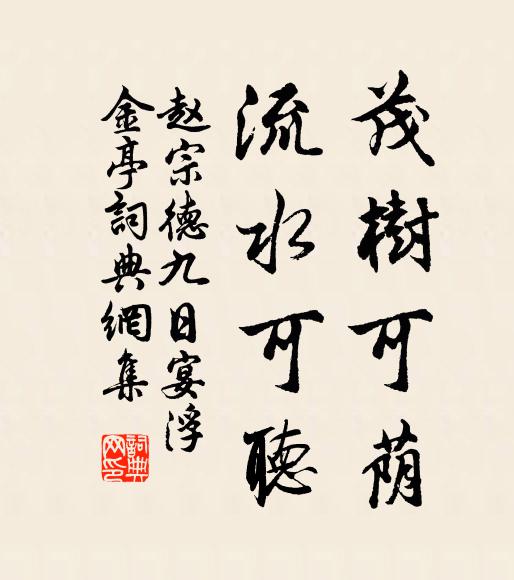 茂樹可蔭
流水可聽
赵宗德九日宴浮
金亭詞典網集
詞典
网印